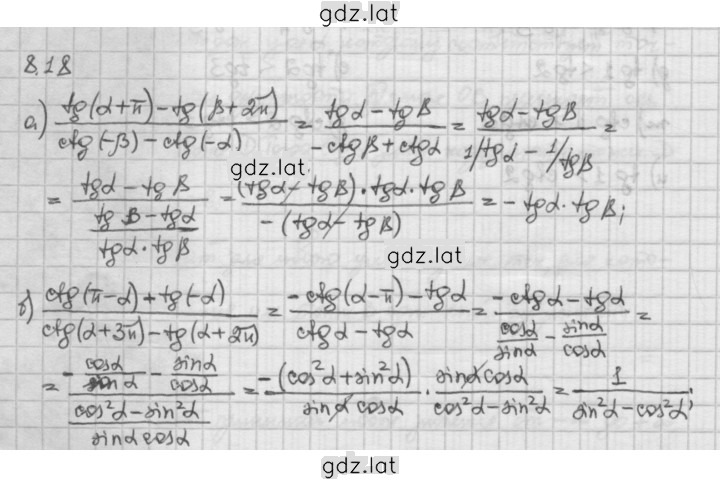 gdz.lat
8.18
а) (tg(α+π)−tg(β+2π))/(ctg(−β)−ctg(−α)) = (tgα−tgβ)/(−ctgβ+ctgα) = (tgα−tgβ)/(1/tgα−1/tgβ) =
gdz.lat
= (tgα−tgβ)/((tgβ−tgα)/(tgα·tgβ)) = ((tgα−tgβ)·tgα·tgβ)/(−(tgα−tgβ)) = −tgα·tgβ;
gdz.lat
б) (ctg(π−α)+tg(−α))/(ctg(α+3π)−tg(α+2π)) = (−ctg(α−π)−tgα)/(ctgα−tgα) = (−ctgα−tgα)/(cosα/sinα−sinα/cosα) =
= (−cosα/sinα−sinα/cosα)/((cos²α−sin²α)/(sinα cosα)) = −(cos²α+sin²α)/(sinα cosα)·(sinα cosα)/(cos²α−sin²α) = 1/(sin²α−cos²α);
gdz.lat